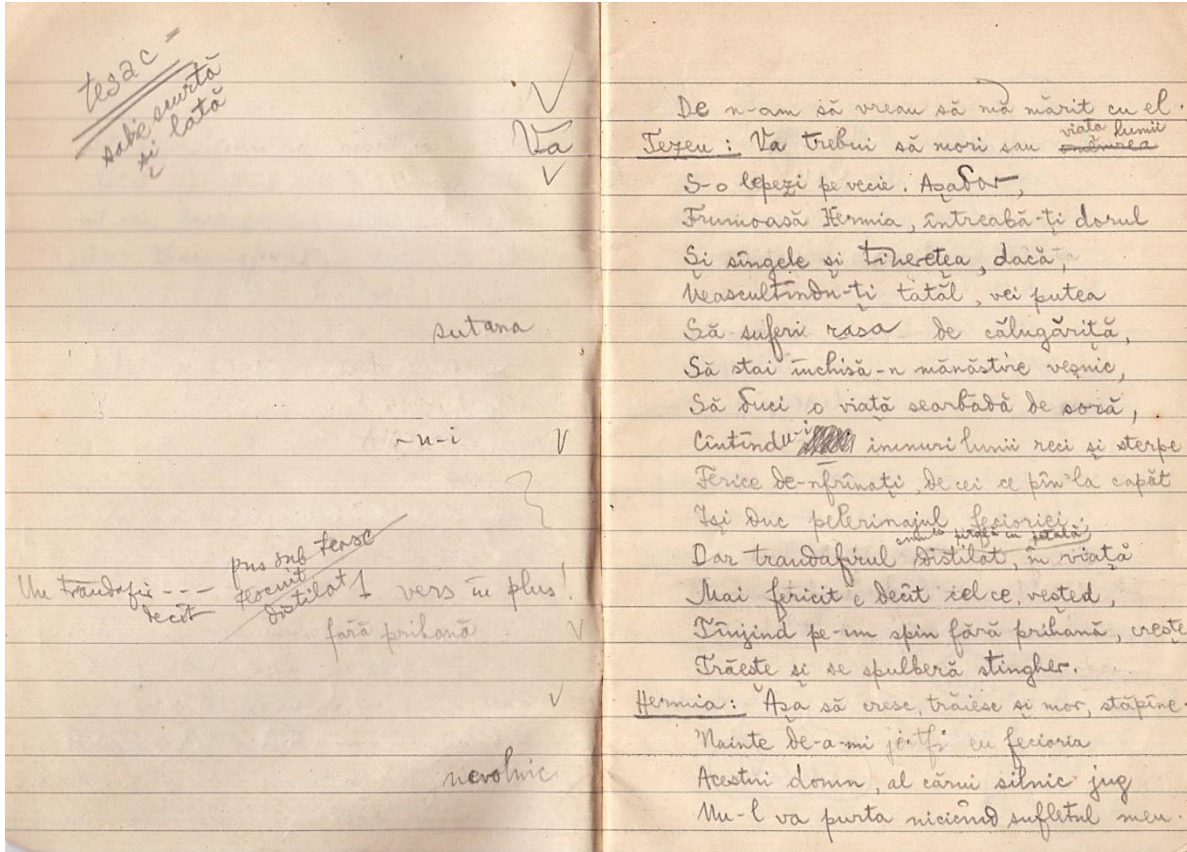 tesac =
sabie scurtă
și lată
Va
sutana
-u-i
pus sub teasc
Un trandafir --- distilat 1 vers în plus!
decît
fără prihană
nevolnic
De n-am să vreau să mă mărit cu el.
viața lumii
Tezeu: Va trebui să mori sau
S-o lepezi pe vecie. Așadar,
Frumoasă Hermia, întreabă-ți dorul
Și sîngele și tinerețea, dacă,
Neascultîndu-ți tatăl, vei putea
Să suferi rasa de călugăriță,
Să stai închisă-n mănăstire veșnic,
Să duci o viață searbădă de soră,
Cîntîndu-i imnuri lunii reci și sterpe
Ferice de-nfrînați, de cei ce pîn' la capăt
Își duc pelerinajul fecioriei;
Dar trandafirul distilat, în viață
Mai fericit e decît cel ce, vested,
Tînjind pe-un spin fără prihană, crește
Trăește și se spulberă stingher.
Hermia: Așa să cresc, trăiesc și mor, stăpîne.
'Nainte de-a-mi jertfi cu fecioria
Acestui domn, al cărui silnic jug
Nu-l va purta nicicînd sufletul meu.